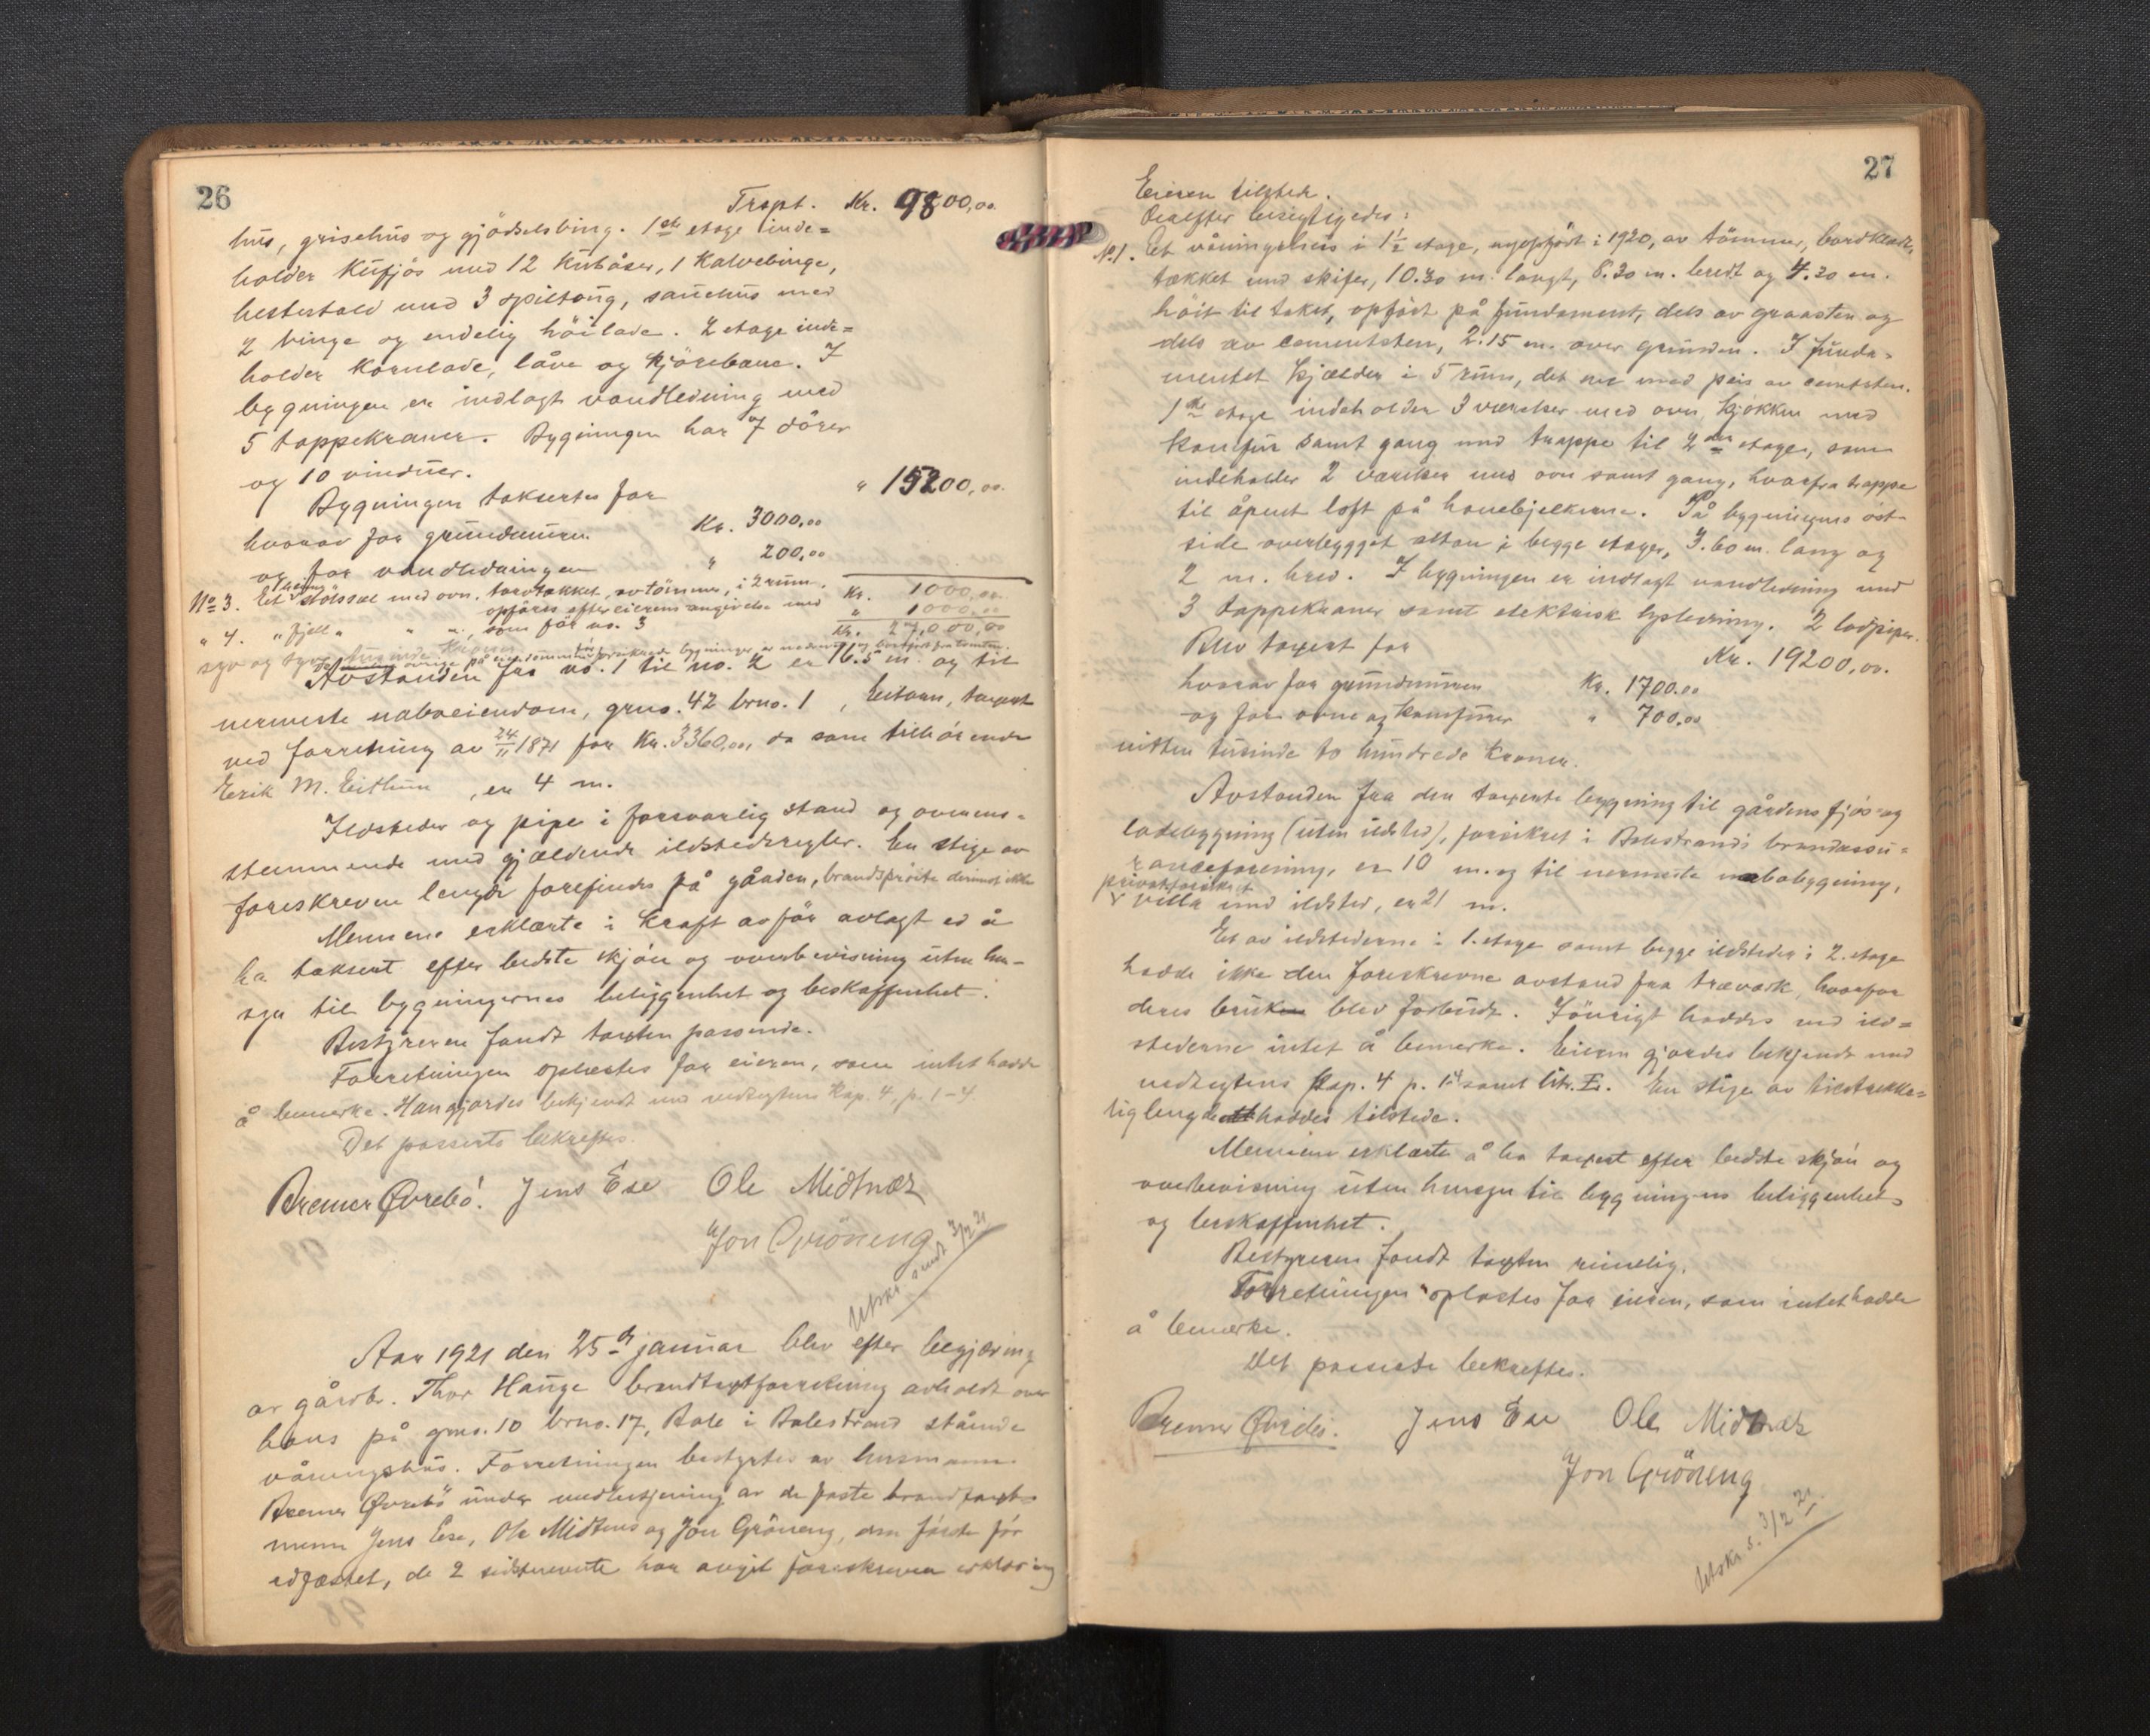 26
Trspt. Kr. 9800,00
hus, grisehus og gjödselsbing. 1ste etage inde=
holder Kufjös med 12 Kubåser, 1 Kalvebinge,
hestestald med 3 spiltoug, sauehus med
2 binge og endelig höilade. 2 etage inde=
holder Kornlade, låve og Kjörebane. I
bygningen er indlagt vandledning med
5 tappekraner. Bygningen har 7 dörer
og 10 vinduer.
Bygningen takseres for " 15200,00
hvorav for grundmuren Kr. 3000,00
og for vandledningen " 200,00
No 3. Et stölssæl med ovn, torvtækket, av tömmer, i 2 rum, Kr. 1000,00
opföres efter eierens angivelse med
" 4. " fjell " " " , som för no. 3 " 1000,00
Kr. 27,000,00
syv og tyve tusinde Kroner
Avstanden fra no. 1 til no. 2 er 16.5 m. og til
nermeste naboeiendom, grno. 42 brno. 1, Eitorn, taxert
ved forretning av 24/11 1871 for Kr. 3360,00, da som tilhörende
Erik M. Eithun, er 4 m.
Ildsteder og pipe i forsvarlig stand og overens-
stemmende med gjældende ildstedsregler. En stige av
foreskreven lengde forefindes på gåarden, brandspröite derimot ikke
Mennene erklærte i kraft av för avlagt ed å
ha taksert efter bedste skjön og overbevisning uten hen-
syn til bygningernes beliggenhet og beskaffenhet.
Bestyreren fandt taxten passende.
Forretningen oplæstes for eieren, som intet hadde
å bemerke. Han gjordes bekjendt med vedtegtens Kap. 4, p. 1-4.
Det passerte bekreftes.
Bremer Øvrebö. Jens Ese Ole Midtnæs
Jon Gröneng
Utskr. sendt 3/2 21
Aar 1921 den 25de januar blev efter begjæring
av gårdbr. Thor Hauge brandtaxtforretning avholdt over
hans på grno. 10 brno. 17, Bale i Balestrand stående
våningshus. Forretningen bestyrtes av lensmann
Bremer Øvrebö under medbetjening av de faste brandtaxt-
menn Jens Ese, Ole Midtnæs og Jon Gröneng, den förste för
edfæstet, de 2 sidstnevnte har avgit foreskreven erklæring
27
Eieren tilstede.
Derefter besigtigedes:
No. 1. Et våningshus i 1½ etage, nyopfört i 1920, av tömmer, bordklædt,
tækket med skifer, 10.30 m. langt, 8.30 m. bredt og 4.30 m.
höit til taket, opfört på fundament, dels av graasten og
dels av cementsten, 2.15 m. over grunden. I funda-
mentet kjælder i 5 rum, det ene med peis av cemtsten.
1ste etage indeholder 3 værelser med ovn, kjökken med
komfur samt gang med trappe til 2den etage, som
indeholder 2 værelser med ovn samt gang, hvorfra trappe
til åpent loft på hanebjelkerne. På bygningens öst-
side overbygget altan i begge etager, 3.60 m. lang og
2 m. bred. I bygningen er indlagt vandledning med
3 tappekraner samt elektrisk lysledning. 2 lodpiper.
Blev taxert for Kr. 19200,00.
hvorav for grundmuren Kr. 1700.00
og for ovne og komfurer " 700.00
nitten tusinde to hundrede Kroner.
Avstanden fra den taxerte bygning til gårdens fjös og
ladebygning (uten ildsted), forsikret i Balestrands brandassu-
ranceforening, er 10 m. og til nermeste nabobygning,
privatforsikret
villa med ildsted, er 21 m.
Et av ildstederne i 1. etage samt begge ildsteder i 2. etage
hadde ikke den foreskrevne avstand fra trævark, hvorfor
deres bruk blev forbudt. Iövrigt haddes ved ild=
stederne intet å bemerke. Eieren gjordes bekjendt med
vedtegtens Kap. 4 p. 1-4 samt litr. E. En stige av tilstrekke=
lig lengde haddes tilstede.
Mennene erklærte å ha taxert efter bedste skjön og
overbevisning uten hensyn til bygningens beliggenhet
og beskaffenhet.
Bestyreren fandt taxten rimelig.
Forretningen oplæstes for eieren, som intet hadde
å bemerke.
Det passerte bekreftes.
Bremer Øvrebö. Jens Ese Ole Midtnæs
Jon Gröneng
Utskr. s. 3/2 21